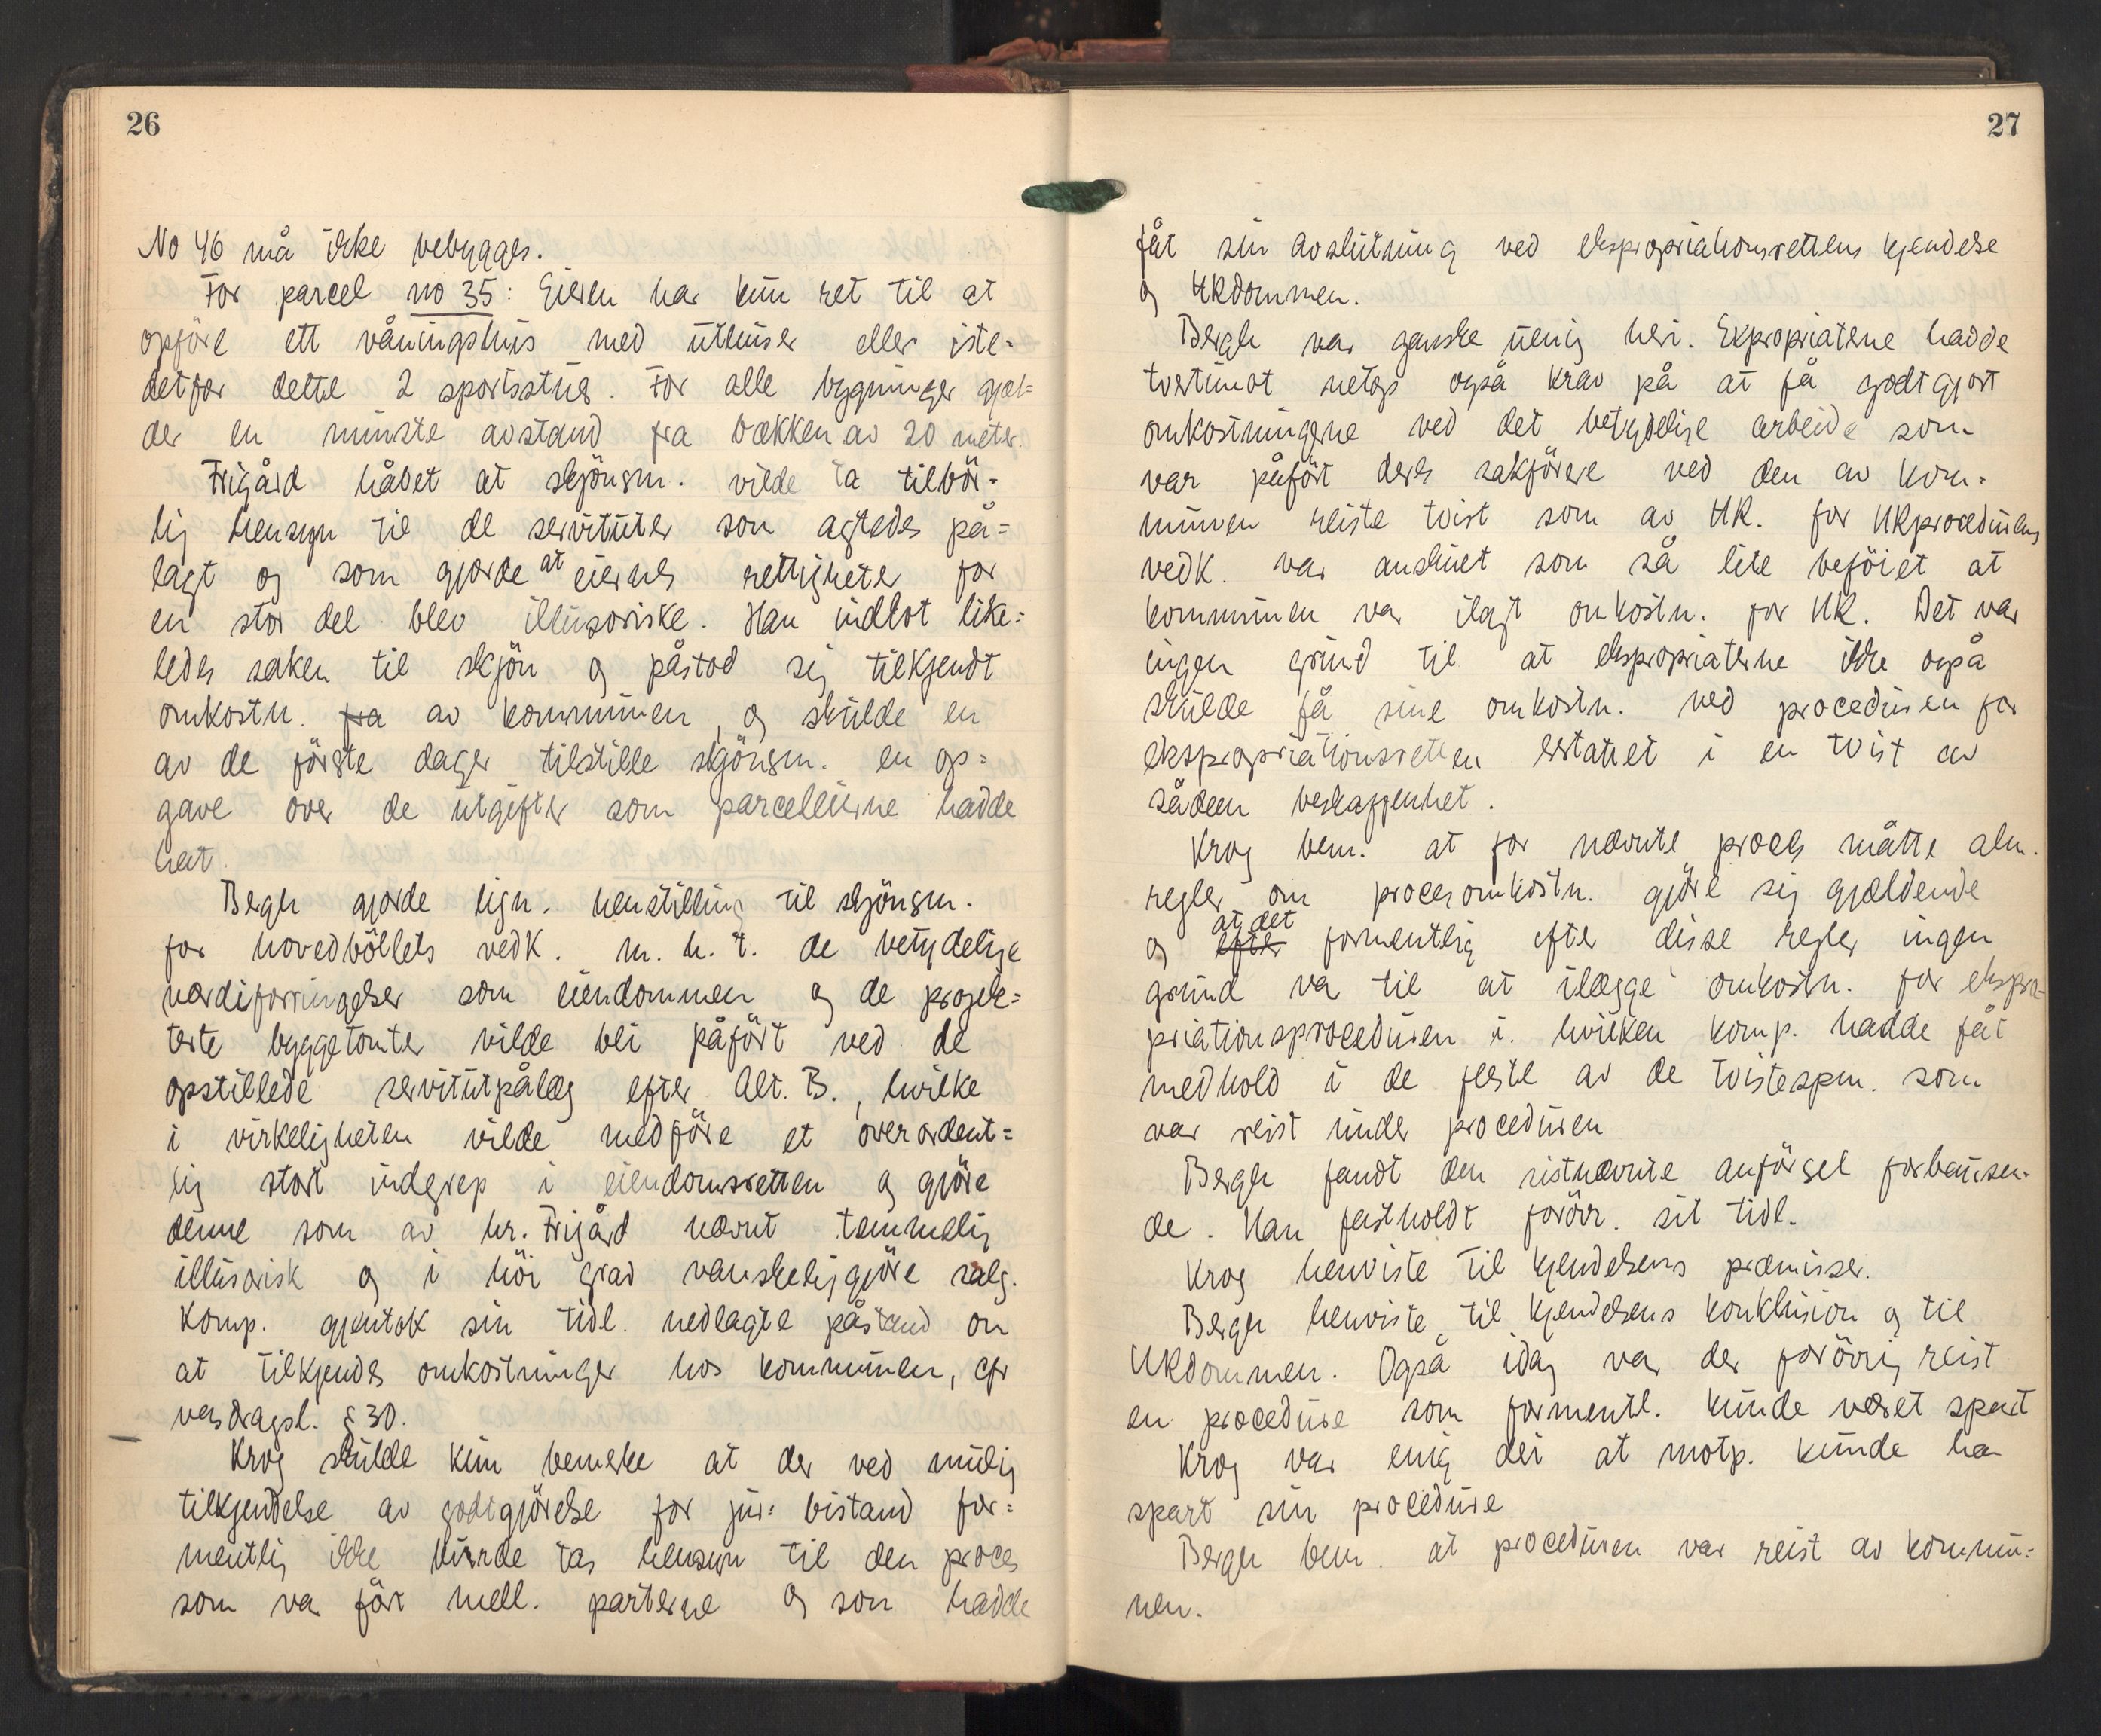 26
No 46 må ikke bebygges.
For parcel no 35: Eieren har kun ret til at
opföre ett våningshus med uthuser eller iste-
detfor dette 2 sportsstuer. For alle bygninger gjæl-
der en minste avstand fra bækken av 20 meter.
Frigård håbet at skjönsm. vilde ta tilbör-
lig hensyn til de servituter som agtedes på-
lagt og som gjorde at eiernes rettigheter for
en stor del blev illusoriske. Han indlot like-
ledes saken til skjön og påstod sig tilkjendt
omkostn. fra av kommunen, og skulde en
av de förste dager tilstille skjönsm. en op-
gave over de utgifter som parceleierne hadde
hat.
Bergh gjorde lign. henstilling til skjönsm.
for hovedbölets vedk. m. h. t. de betydelige
værdiforringelser som eiendommen og de projek-
terte byggetomter vilde bli påfört ved de
opstillede servitutpålæg efter Alt. B., hvilke
i virkeligheten vilde medföre et overordent-
lig stort indgrep i eiendomsretten og gjöre
denne som av hr. Frigård nævnt temmelig
illusorisk og i höi grad vanskeliggjöre salg.
Komp. gjentok sin tidl. nedlagte påstand om
at tilkjendes omkostninger hos kommunen, cfr
vasdragsl. § 30.
Krog skulde kun bemerke at der ved mulig
tilkjendelse av godtgjörelse for jur. bistand for-
mentlig ikke burde tas hensyn til den proces
som var fört mell. parterne og som hadde
27
fåt sin avslutning ved ekspropriationsrettens kjendelse
og HRdommen.
Bergh var ganske uenig heri. Expropriaterne hadde
tvertimot netop også krav på at få godtgjort
omkostningerne ved det betydelige arbeide som
var påfört deres sakförere ved den av kom-
munen reiste tvist som av HR. for HRprocedurens
vedk. var anskuet som så lite beföiet at
kommunen var ilagt omkostn. for HR. Det var
ingen grund til at ekspropriaterne ikke også
skulde få sine omkostn. ved proceduren for
ekspropriationsretten erstattet i en tvist av
sådan beskaffenhet.
Krog bem. at for nævnte proces måtte alm.
regler om procesomkostn. gjöre sig gjældende
og efter at det formentlig efter disse regler ingen
grund var til at ilægge omkostn. for ekspro-
priationsproceduren i hvilken komp. hadde fåt
medhold i de fleste av de tvistespm. som
var reist under proceduren
Bergh fandt den sistnævnte anförsel forbausen-
de. Han fastholdt forövr. sit tidl.
Krog henviste til kjendelsens præmisser.
Bergh henviste til kjendelsens konklusion og til
HRdommen. Også idag var der forövrig reist
en procedure som formentl. kunde været spart
Krog var enig deri at motp. kunde ha
spart sin procedure
Bergh bem. at proceduren var reist av kommu-
nen.